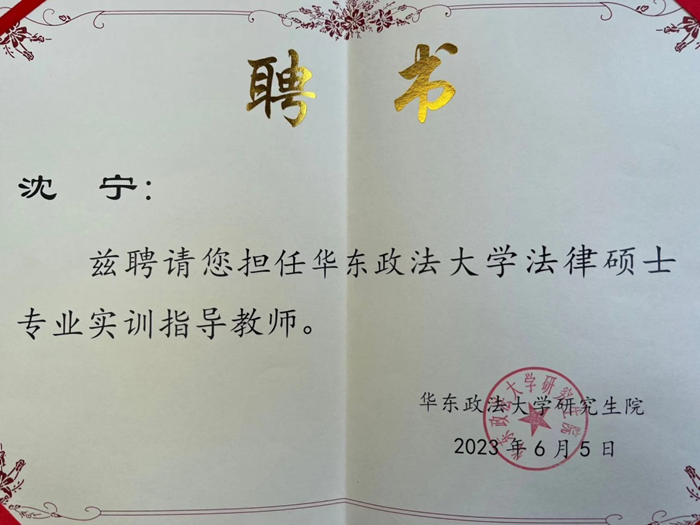 聘 书
沈 宁：
兹聘请您担任华东政法大学法律硕士
专业实训指导教师。
华东政法大学研究生院
2023 年 6 月 5 日
华东政法大学研究生院